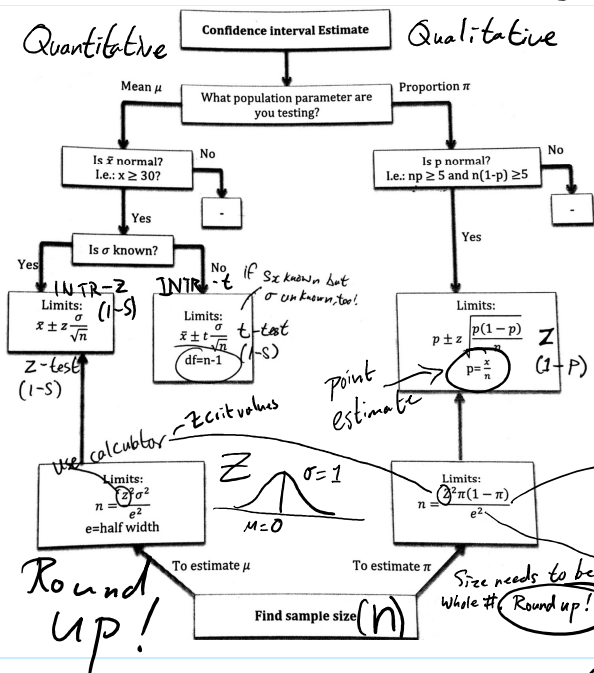 Quantitative
Confidence interval Estimate
Qualitative
Mean μ
What population parameter are
you testing?
Proportion π
Is x̄ normal?
I.e.: x ≥ 30?
No
-
Is p normal?
I.e.: np ≥ 5 and n(1-p) ≥5
No
-
Yes
Is σ known?
Yes
No
Yes
INTR-Z
(1-S)
Limits:
x̄ ± z σ/√n
Z-test
(1-S)
INTR-t
if Sx known but
σ unknown, too!
Limits:
x̄ ± t σ/√n
df=n-1
t-test
(1-S)
Limits:
p ± z √(p(1 − p)/n)
p= x/n
Z
(1-P)
point
estimate
use calculator
Zcritvalues
Limits:
n = z²σ²/e²
e=half width
Z
σ=1
μ=0
Limits:
n = z²π(1 − π)/e²
To estimate μ
To estimate π
Find sample size
(n)
Round
up!
Size needs to be
whole #. Round up!